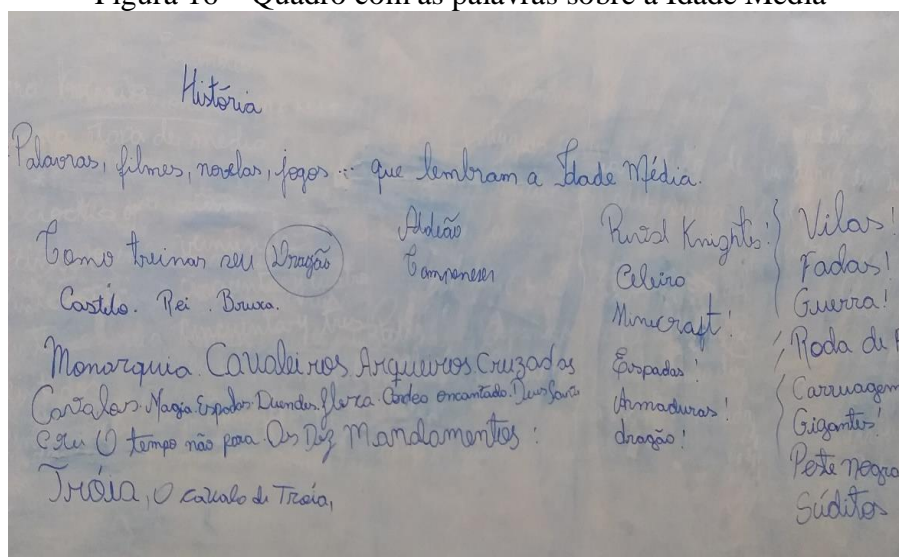 Figura 16 – Quadro com as palavras sobre a Idade Média
História
Palavras, filmes, novelas, jogos... que lembram a Idade Média.
Como treinar seu Dragão
Castelo. Rei. Bruxa.
Aldeão
Camponeses
Monarquia. Cavaleiros Arqueiros Cruzadas
Cavalos. Magia. Espadas. Duendes. encantado. Deus
O tempo não para. Os Dez Mandamentos:
Tróia, O cavalo de Tróia,
Knights!
Celeiro
Minecraft!
Espadas!
Armaduras!
dragão!
Vilas!
Fadas!
Guerra!
Roda de
Carruagem
Gigantes!
Peste negra
Súditos